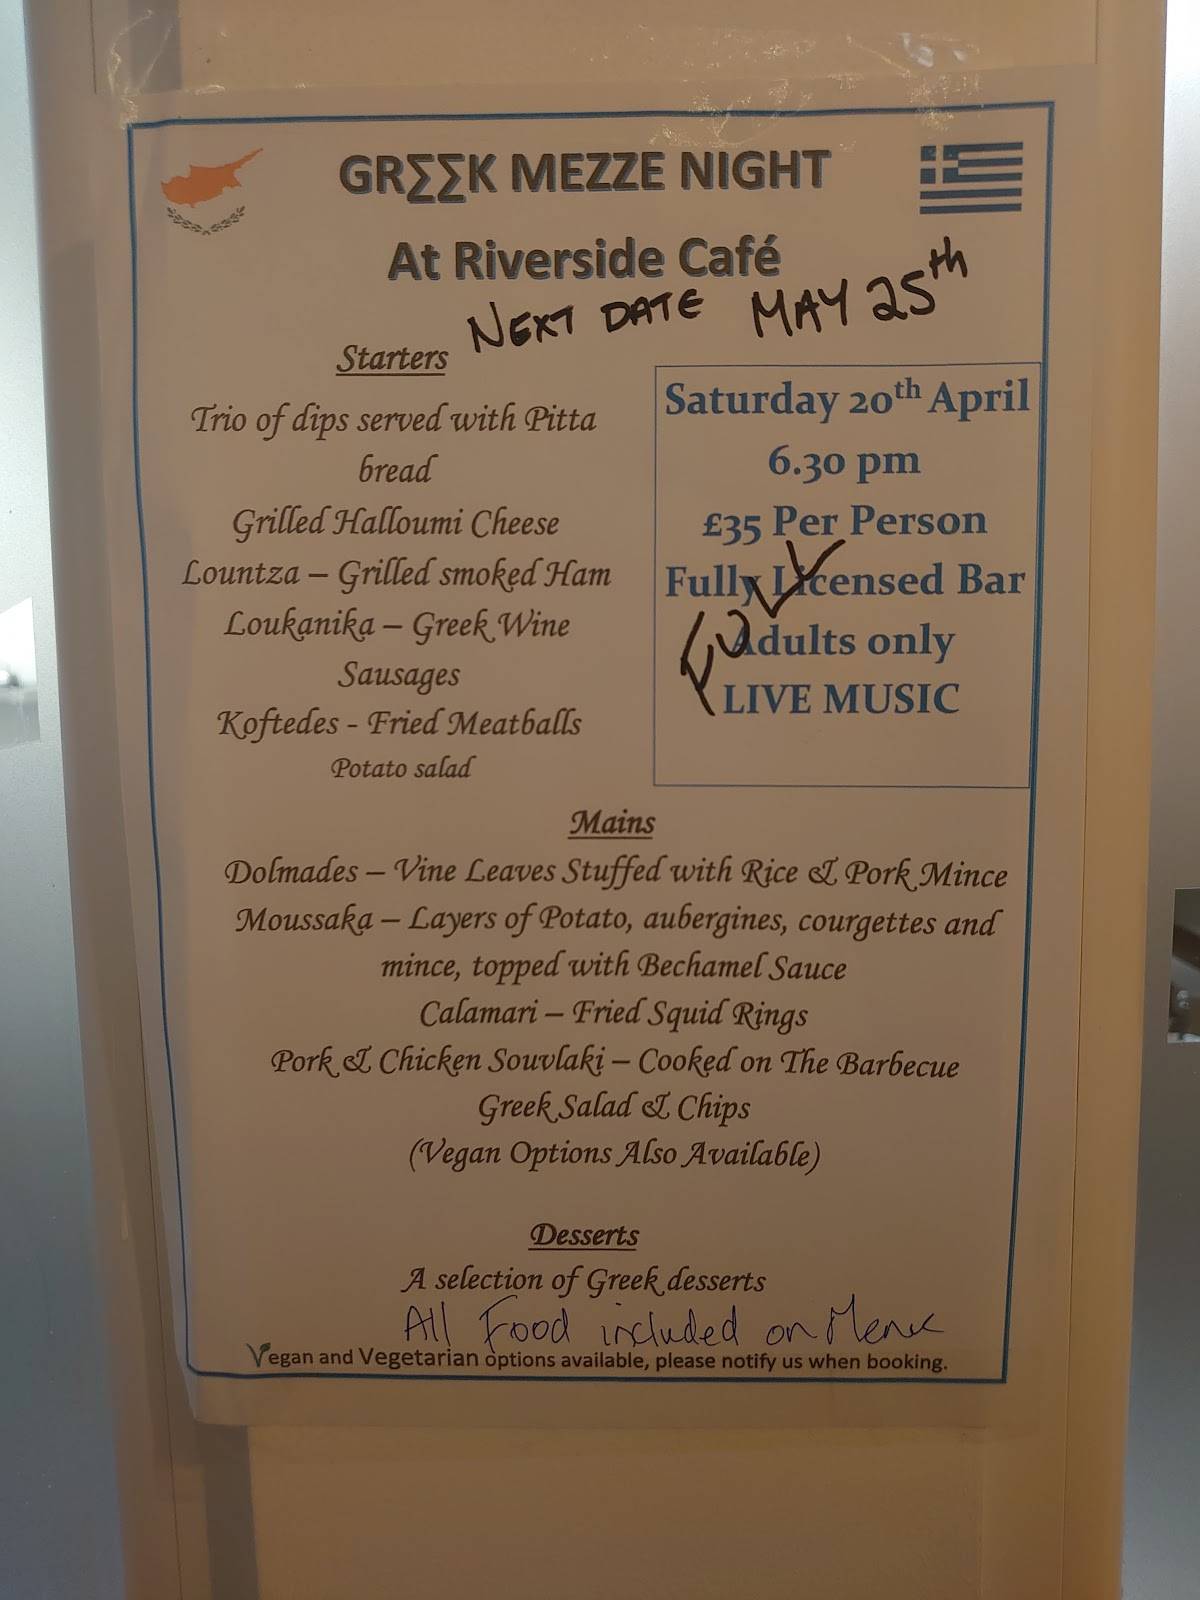 GRΣΣK MEZZE NIGHT
At Riverside Café
NEXT DATE MAY 25th
Starters
Trio of dips served with Pitta
bread
Grilled Halloumi Cheese
Lountza – Grilled smoked Ham
Loukanika – Greek Wine
Sausages
Koftedes - Fried Meatballs
Potato salad
Saturday 20th April
6.30 pm
£35 Per Person
Fully Licensed Bar
Adults only
LIVE MUSIC
FULL
Mains
Dolmades – Vine Leaves Stuffed with Rice & Pork Mince
Moussaka – Layers of Potato, aubergines, courgettes and
mince, topped with Bechamel Sauce
Calamari – Fried Squid Rings
Pork & Chicken Souvlaki – Cooked on The Barbecue
Greek Salad & Chips
(Vegan Options Also Available)
Desserts
A selection of Greek desserts
All Food included on Menu
Vegan and Vegetarian options available, please notify us when booking.